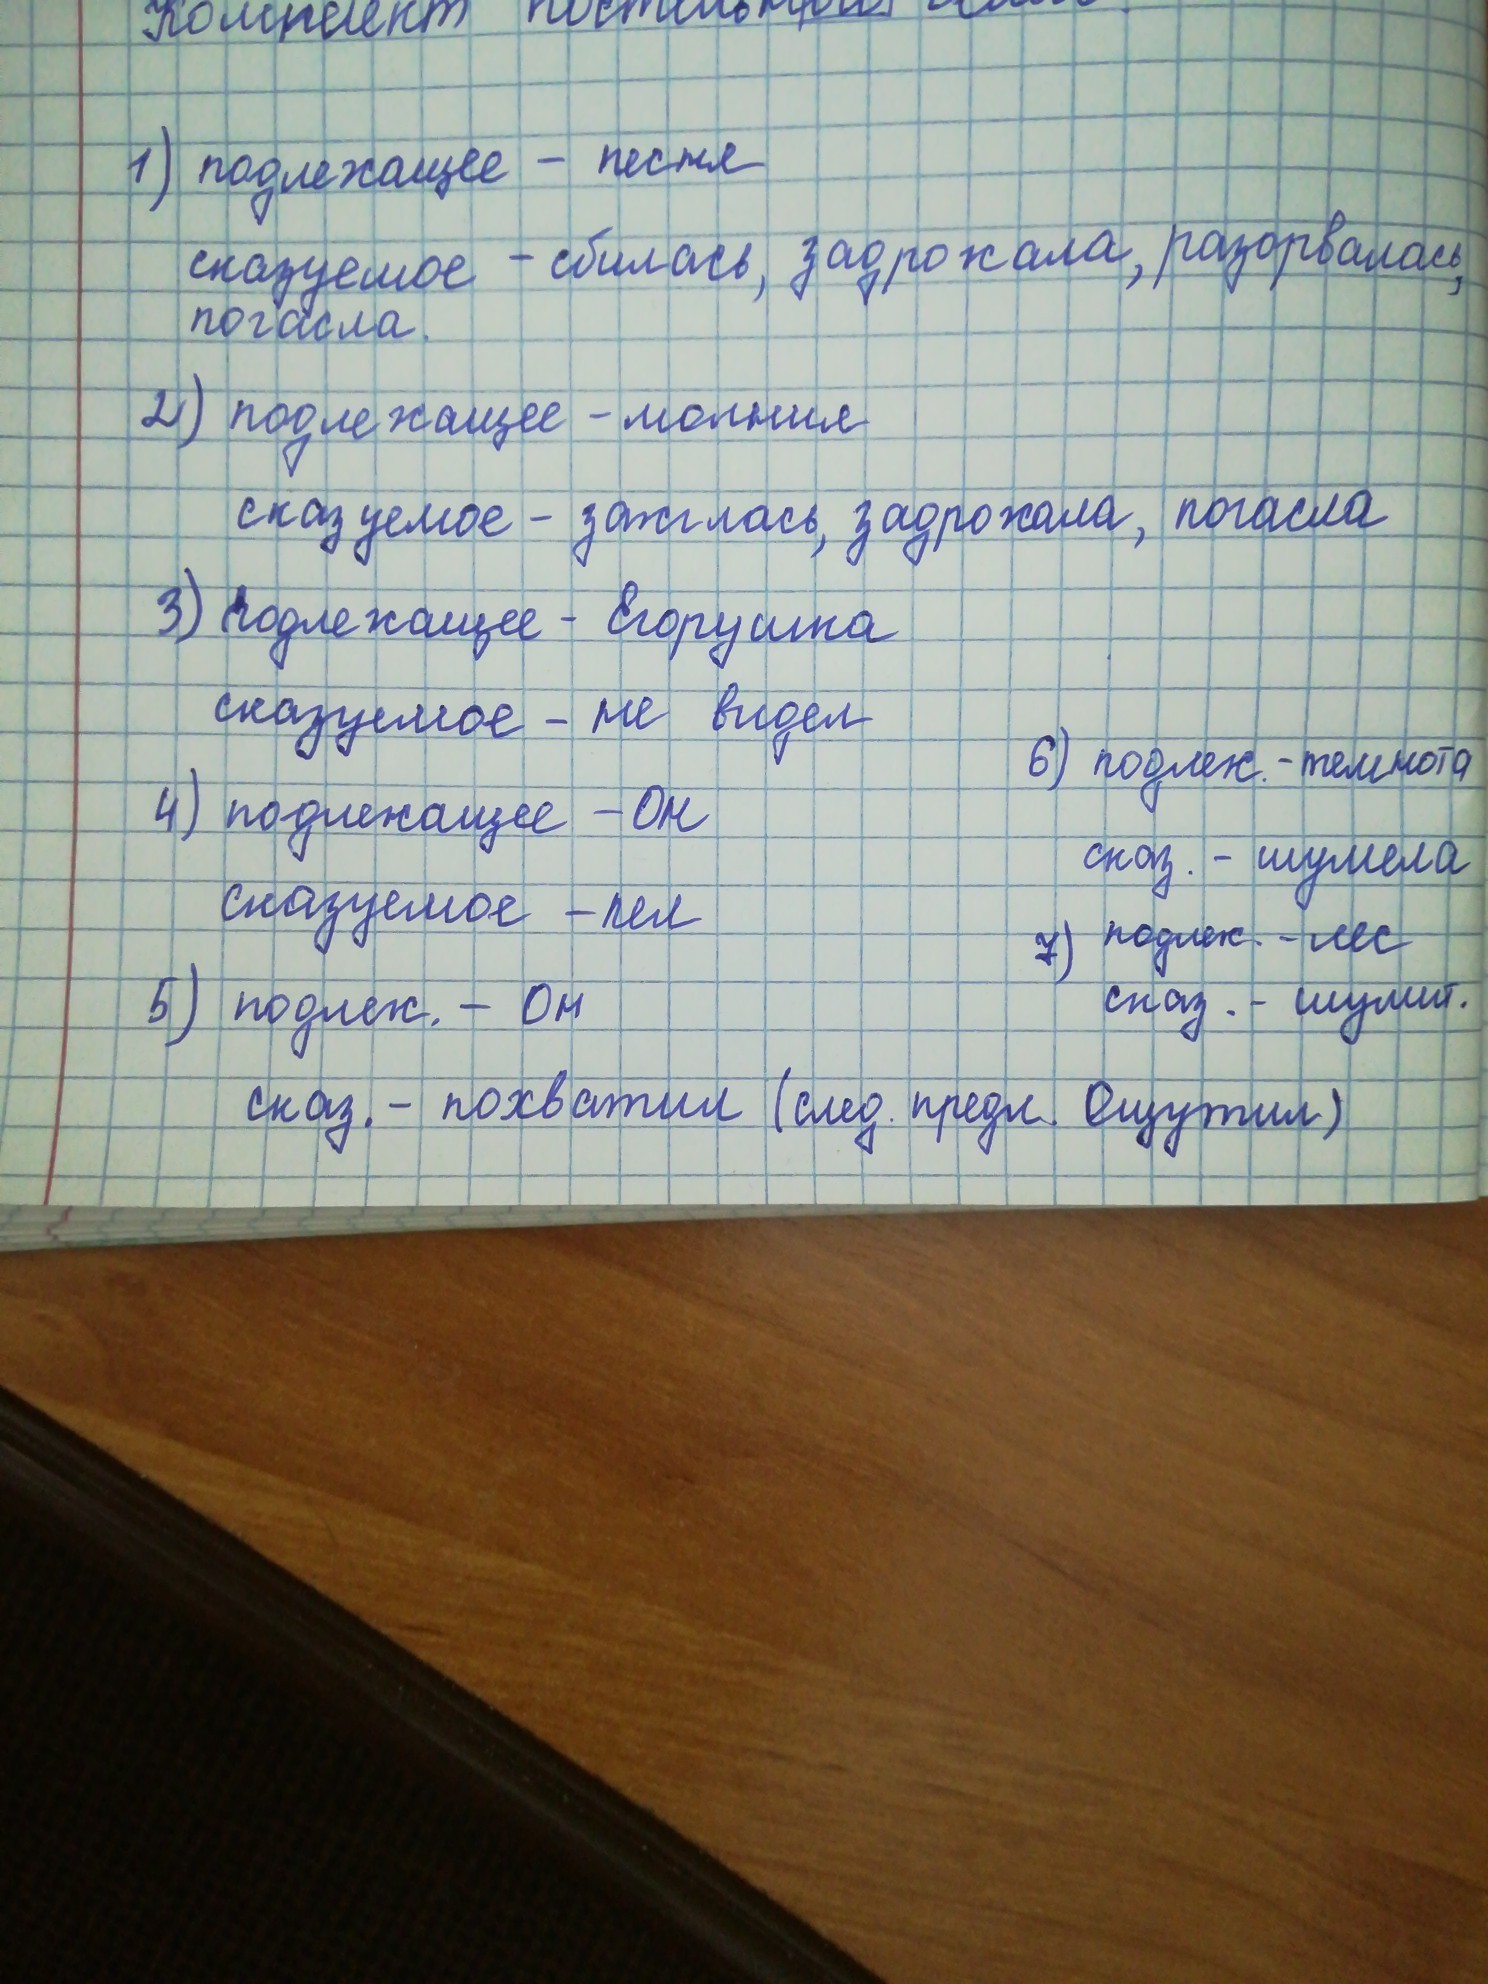 Комплект постельного
1) подлежащее – песня
сказуемое – сбилась, задрожала, разорвалась,
погасла.
2) подлежащее – молния
сказуемое – зажглась, задрожала, погасла
3) подлежащее – Егорушка
сказуемое – не видел
4) подлежащее – Он
сказуемое – пел
5) подлеж. – Он
сказ. – похватил (след. предл. Ощутил)
6) подлеж. – темнота
сказ. – шумела
7) подлеж. – лес
сказ. – шумит.